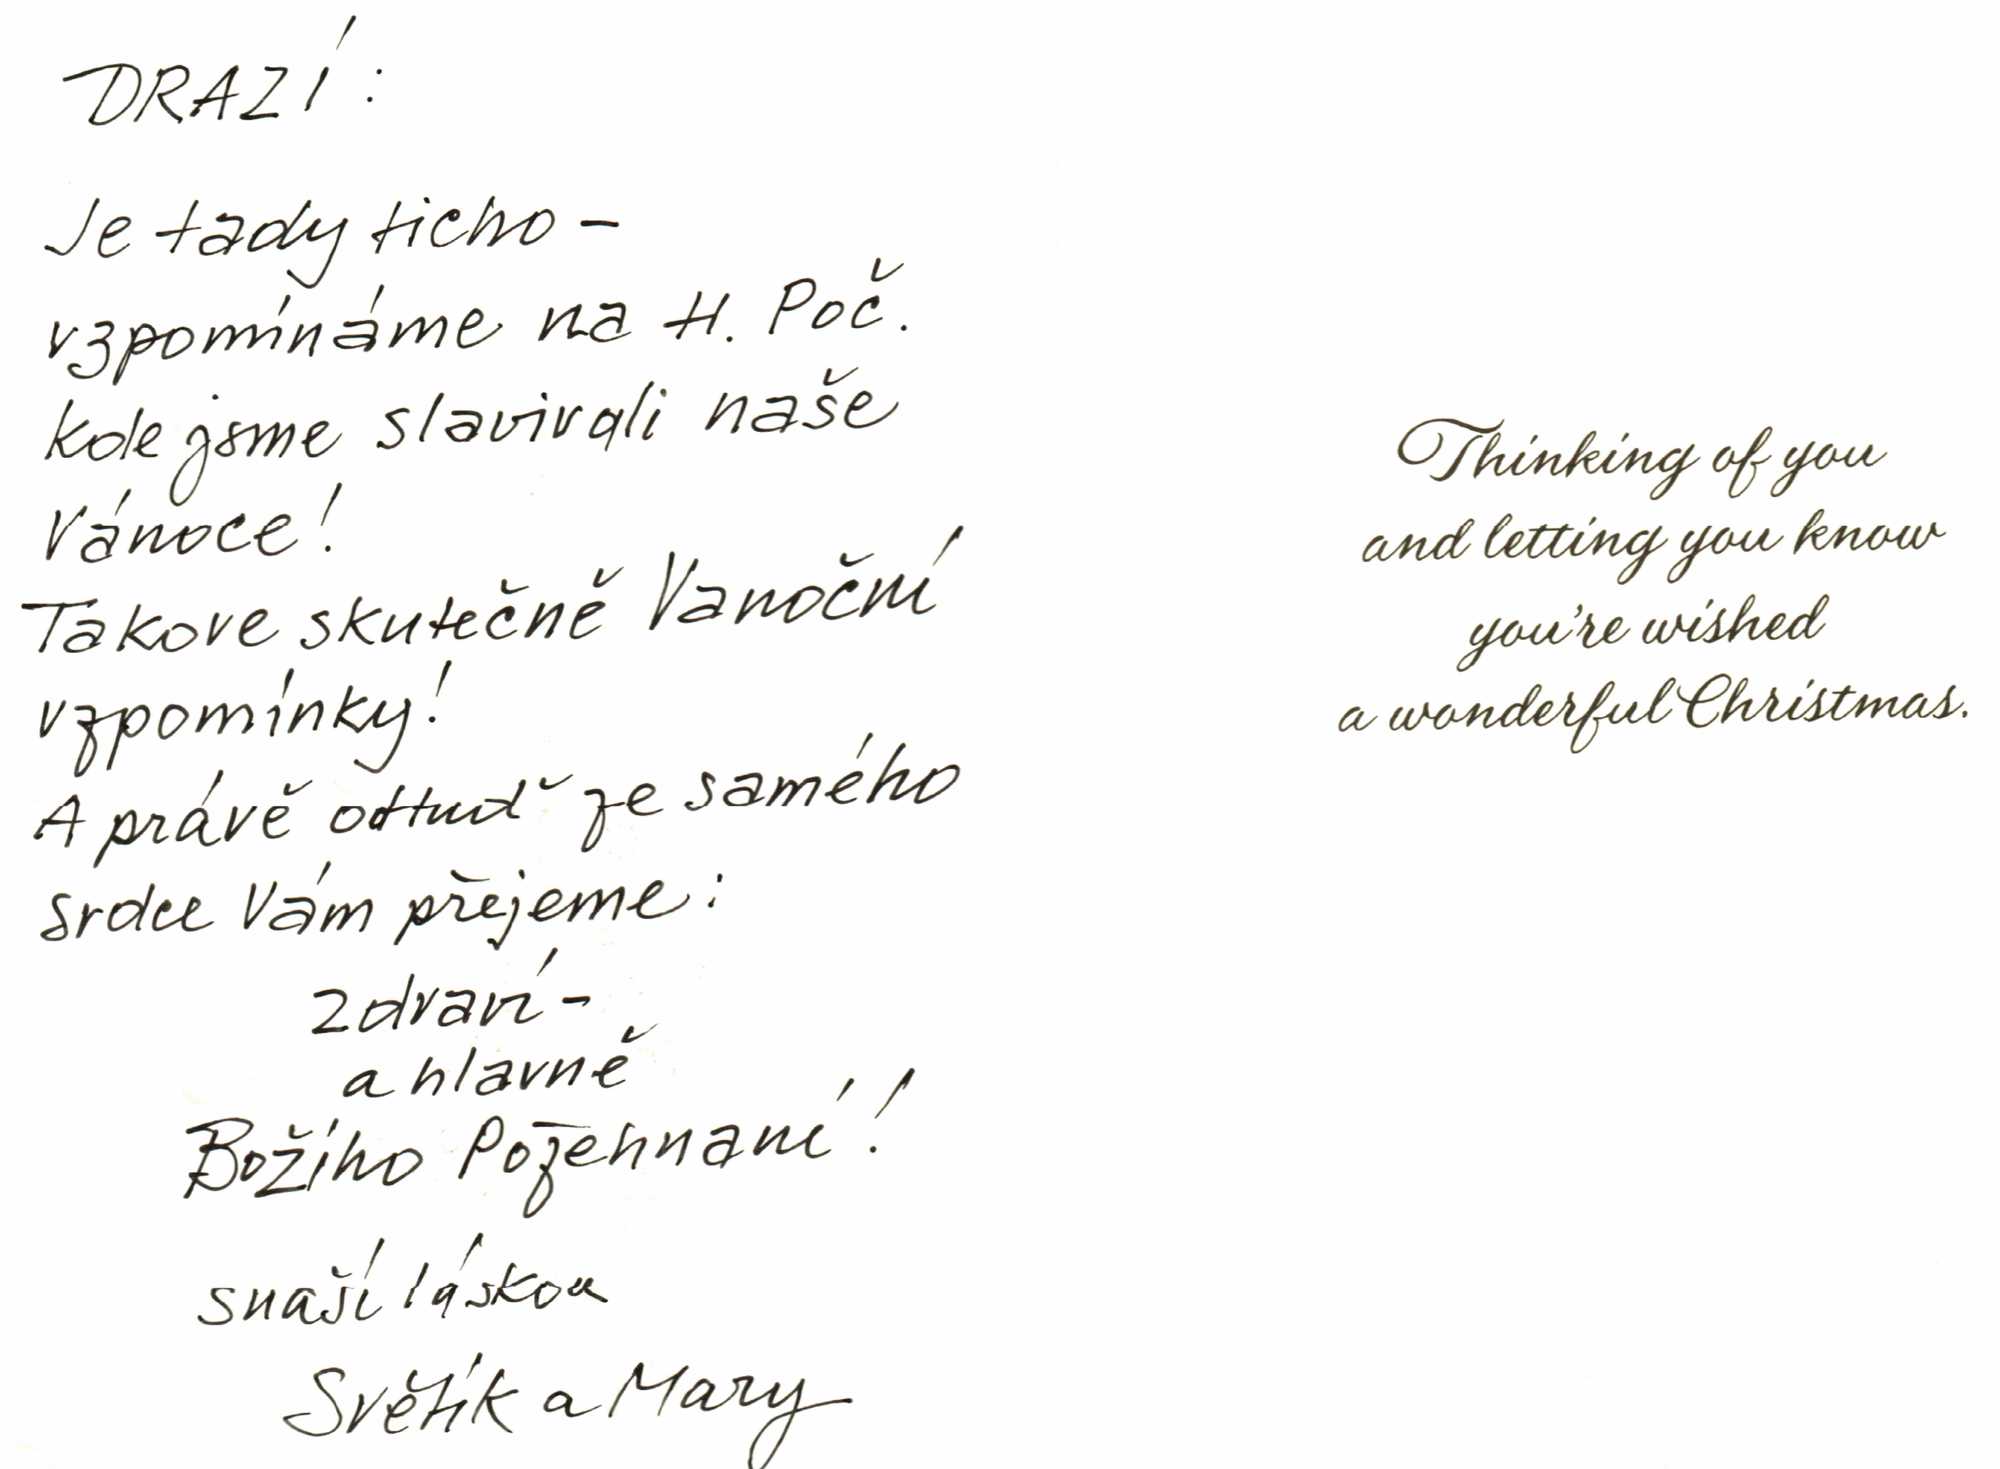 DRAZÍ:
Je tady ticho –
vzpomínáme na H. Poč.
kde jsme slavivali naše
Vánoce!
Takove skutečně Vanoční
vzpomínky!
A právě ottuď ze samého
srdce Vám přejeme:
zdraví –
a hlavně
Božího Požehnaní!
s naší láskou
Světík a Mary
Thinking of you
and letting you know
you're wished
a wonderful Christmas.